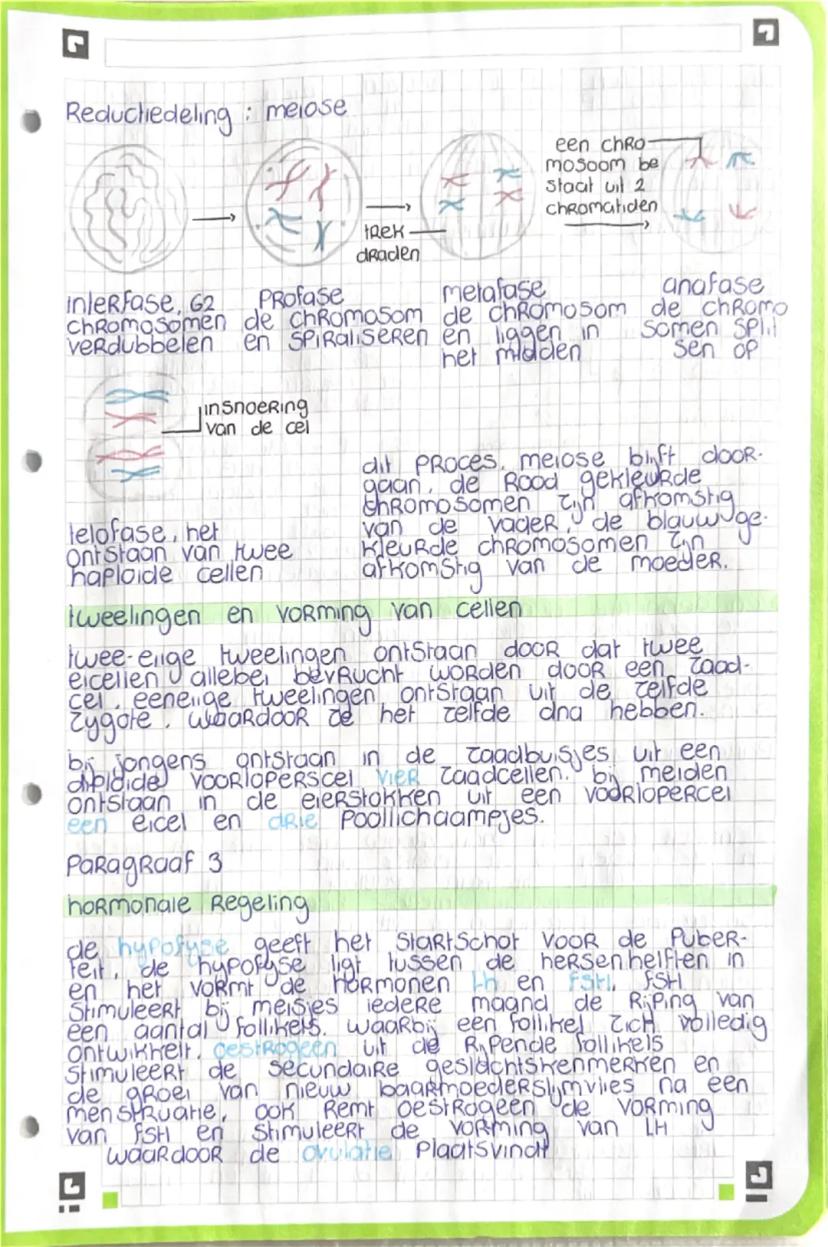 Reductiedeling : meiose
een chro
mosoom be
staat uit 2
chromatiden
trek
draden
interfase, G2
chromosomen
verdubbelen
profase
de chromosom
en spiraliseren
metafase
de chromosom
en liggen in
het midden
anafase
de chromo
somen split
sen op
insnoering
van de cel
telofase, het
ontstaan van twee
haploide cellen
dit proces, meiose blijft door-
gaan, de rood gekleurde
chromosomen zijn afkomstig
van de vader, de blauw ge-
kleurde chromosomen zijn
afkomstig van de moeder.
tweelingen en vorming van cellen
twee-eiige tweelingen ontstaan door dat twee
eicellen allebei bevrucht worden door een zaad-
cel, eeneiige tweelingen ontstaan uit de zelfde
zygote, waardoor ze het zelfde dna hebben.
bij jongens ontstaan in de zaadbuisjes uit een
diploide voorloperscel vier zaadcellen. bij meiden
ontstaan in de eierstokken uit een voorlopercel
een eicel en drie poollichaampjes.
Paragraaf 3
hormonale regeling
de hypofyse geeft het startschot voor de puber-
teit, de hypofyse ligt tussen de hersenhelften in
en het vormt de hormonen lh en fSH, fSH
stimuleert bij meisjes iedere maand de rijping van
een aantal follikels. waarbij een follikel zich volledig
ontwikkelt. oestrogeen uit de rijpende follikels
stimuleert de secundaire geslachtskenmerken en
de groei van nieuw baarmoederslijmvlies na een
menstruatie, ook remt oestrogeen de vorming
van fSH en stimuleert de vorming van LH
waardoor de ovulatie plaatsvindt